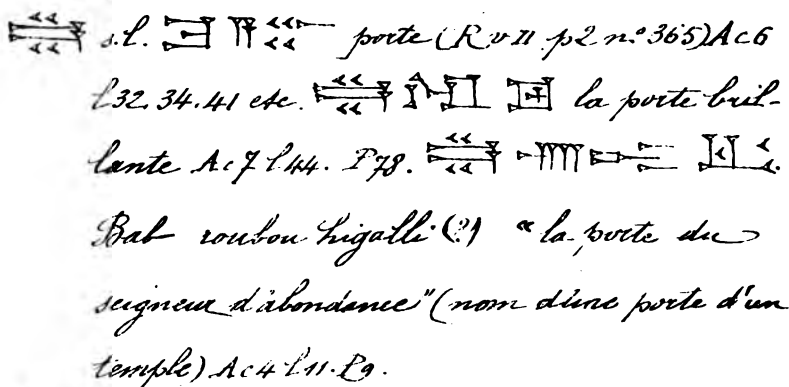 𒆍 s.l. porte (R v II p2 n.º 365) Ac6
l32.34.41 etc. 𒆍 la porte bril-
lante Ac7 l44. P78. 𒆍
Bab roubou higalli (?) "la porte du
seigneur d'abondance" (nom d'une porte d'un
temple) Ac4 l11. P9.